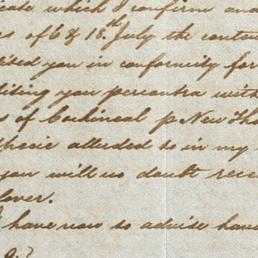 which I confirm an
of 6 & 18th July the conten
you in conformity for
you percontra with
of Cochineal p New
alluded to in my
you will no doubt rece
over.
have now to advise hav